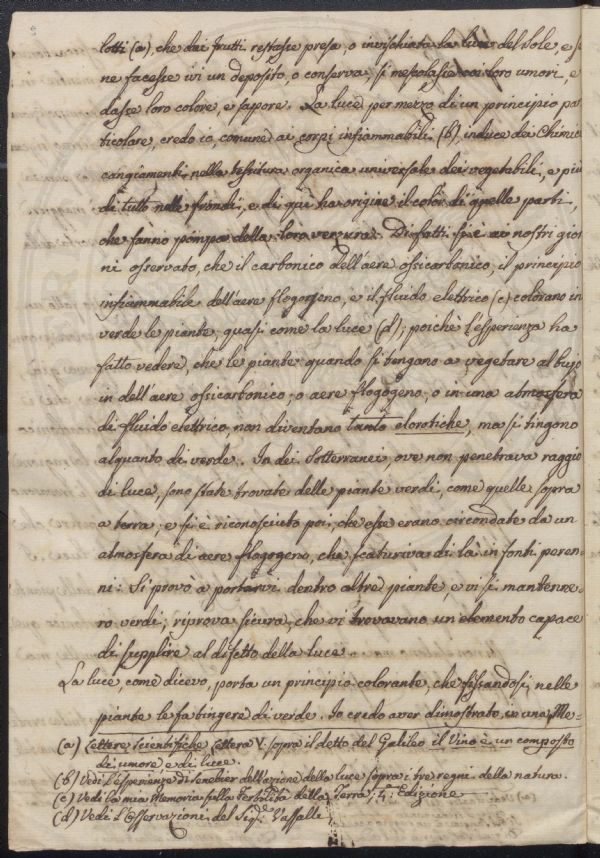 lotti (a), che dai frutti restasse presa, o invischiata la luce del Sole, e se
ne facesse ivi un deposito, o conserva si mescolasse coi loro umori, e
dasse loro colore, e sapore. La luce per mezzo di un principio par
ticolare, credo io, comune ai corpi infiammabili (b), induce dei Chimici
cangiamenti nella tessitura organica universale dei vegetabili, e piu
di tutto nelle frondi, e di qui ha origine il color di quelle parti,
che fanno pompa della loro verzura. Di fatti si è ai nostri gior
ni osservato, che il carbonico dell'aere ossicarbonico, il principio
infiammabile dell'aere flogogeno, e il fluido elettrico (c) colorano in
verde le piante quasi come la luce (d); poichè l'esperienza ha
fatto vedere, che le piante quando si tengano a vegetare al bujo
in dell'aere ossicarbonico, o aere flogogeno, o in una atmosfera
di fluido elettrico non diventano tanto clorotiche, ma si tingono
alquanto di verde. In dei Sotterranei, ove non penetrava raggio
di luce, sono state trovate delle piante verdi, come quelle sopra
a terra; e si è riconosciuto poi, che esse erano circondate da un
atmosfera di aere flogogeno, che scaturiva di là in fonti peren-
ni: Si provò a portarvi dentro altre piante, e vi si mantenne-
ro verdi; riprova sicura, che vi trovavano un elemento capace
di supplire al difetto della luce
La luce, come dicevo, porta un principio colorante, che fissandosi nelle
piante le fa tingere di verde. Io credo aver dimostrato in una Me-
(a) Lettere scientifiche Lettera V. sopra il detto del Galileo il Vino è un composto
di umore e di luce.
(b) Vedi l'esperienze di Senebier dell'azione della luce sopra i tre regni della natura.
(c) Vedi la mia Memoria sulla Fertilità della Terra; Edizione
(d) Vedi l'Osservazioni del Sig.e Vassalli